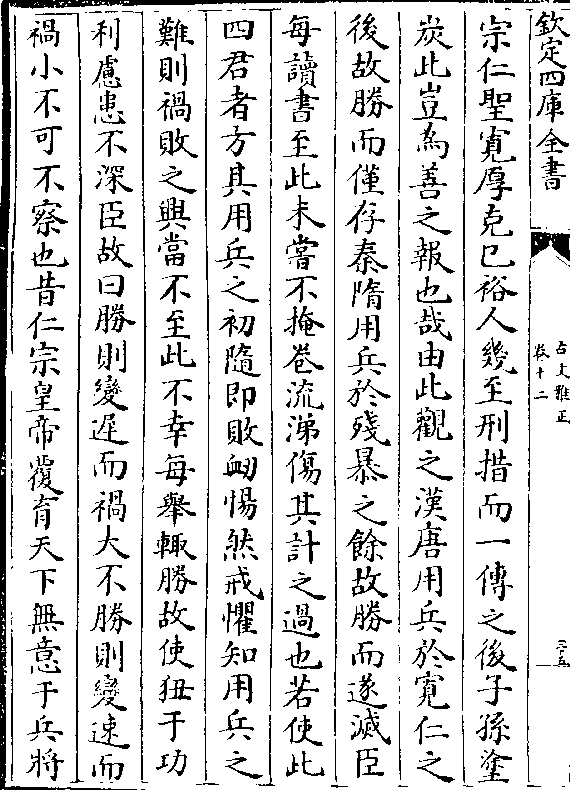 欽定四庫全書
古文雅正
卷十二
二十五
宗仁聖寛厚克已裕人幾至刑措而一傳之後子孫塗
炭此豈為善之報也哉由此觀之漢唐用兵於寛仁之
後故勝而僅存秦隋用兵於殘暴之餘故勝而遂滅臣
每讀書至此未嘗不掩卷流涕傷其計之過也若使此
四君者方其用兵之初隨即敗衂惕然戒懼知用兵之
難則禍敗之興當不至此不幸每舉輒勝故使狃于功
利慮患不深臣故曰勝則變遲而禍大不勝則變速而
禍小不可不察也昔仁宗皇帝覆育天下無意于兵將